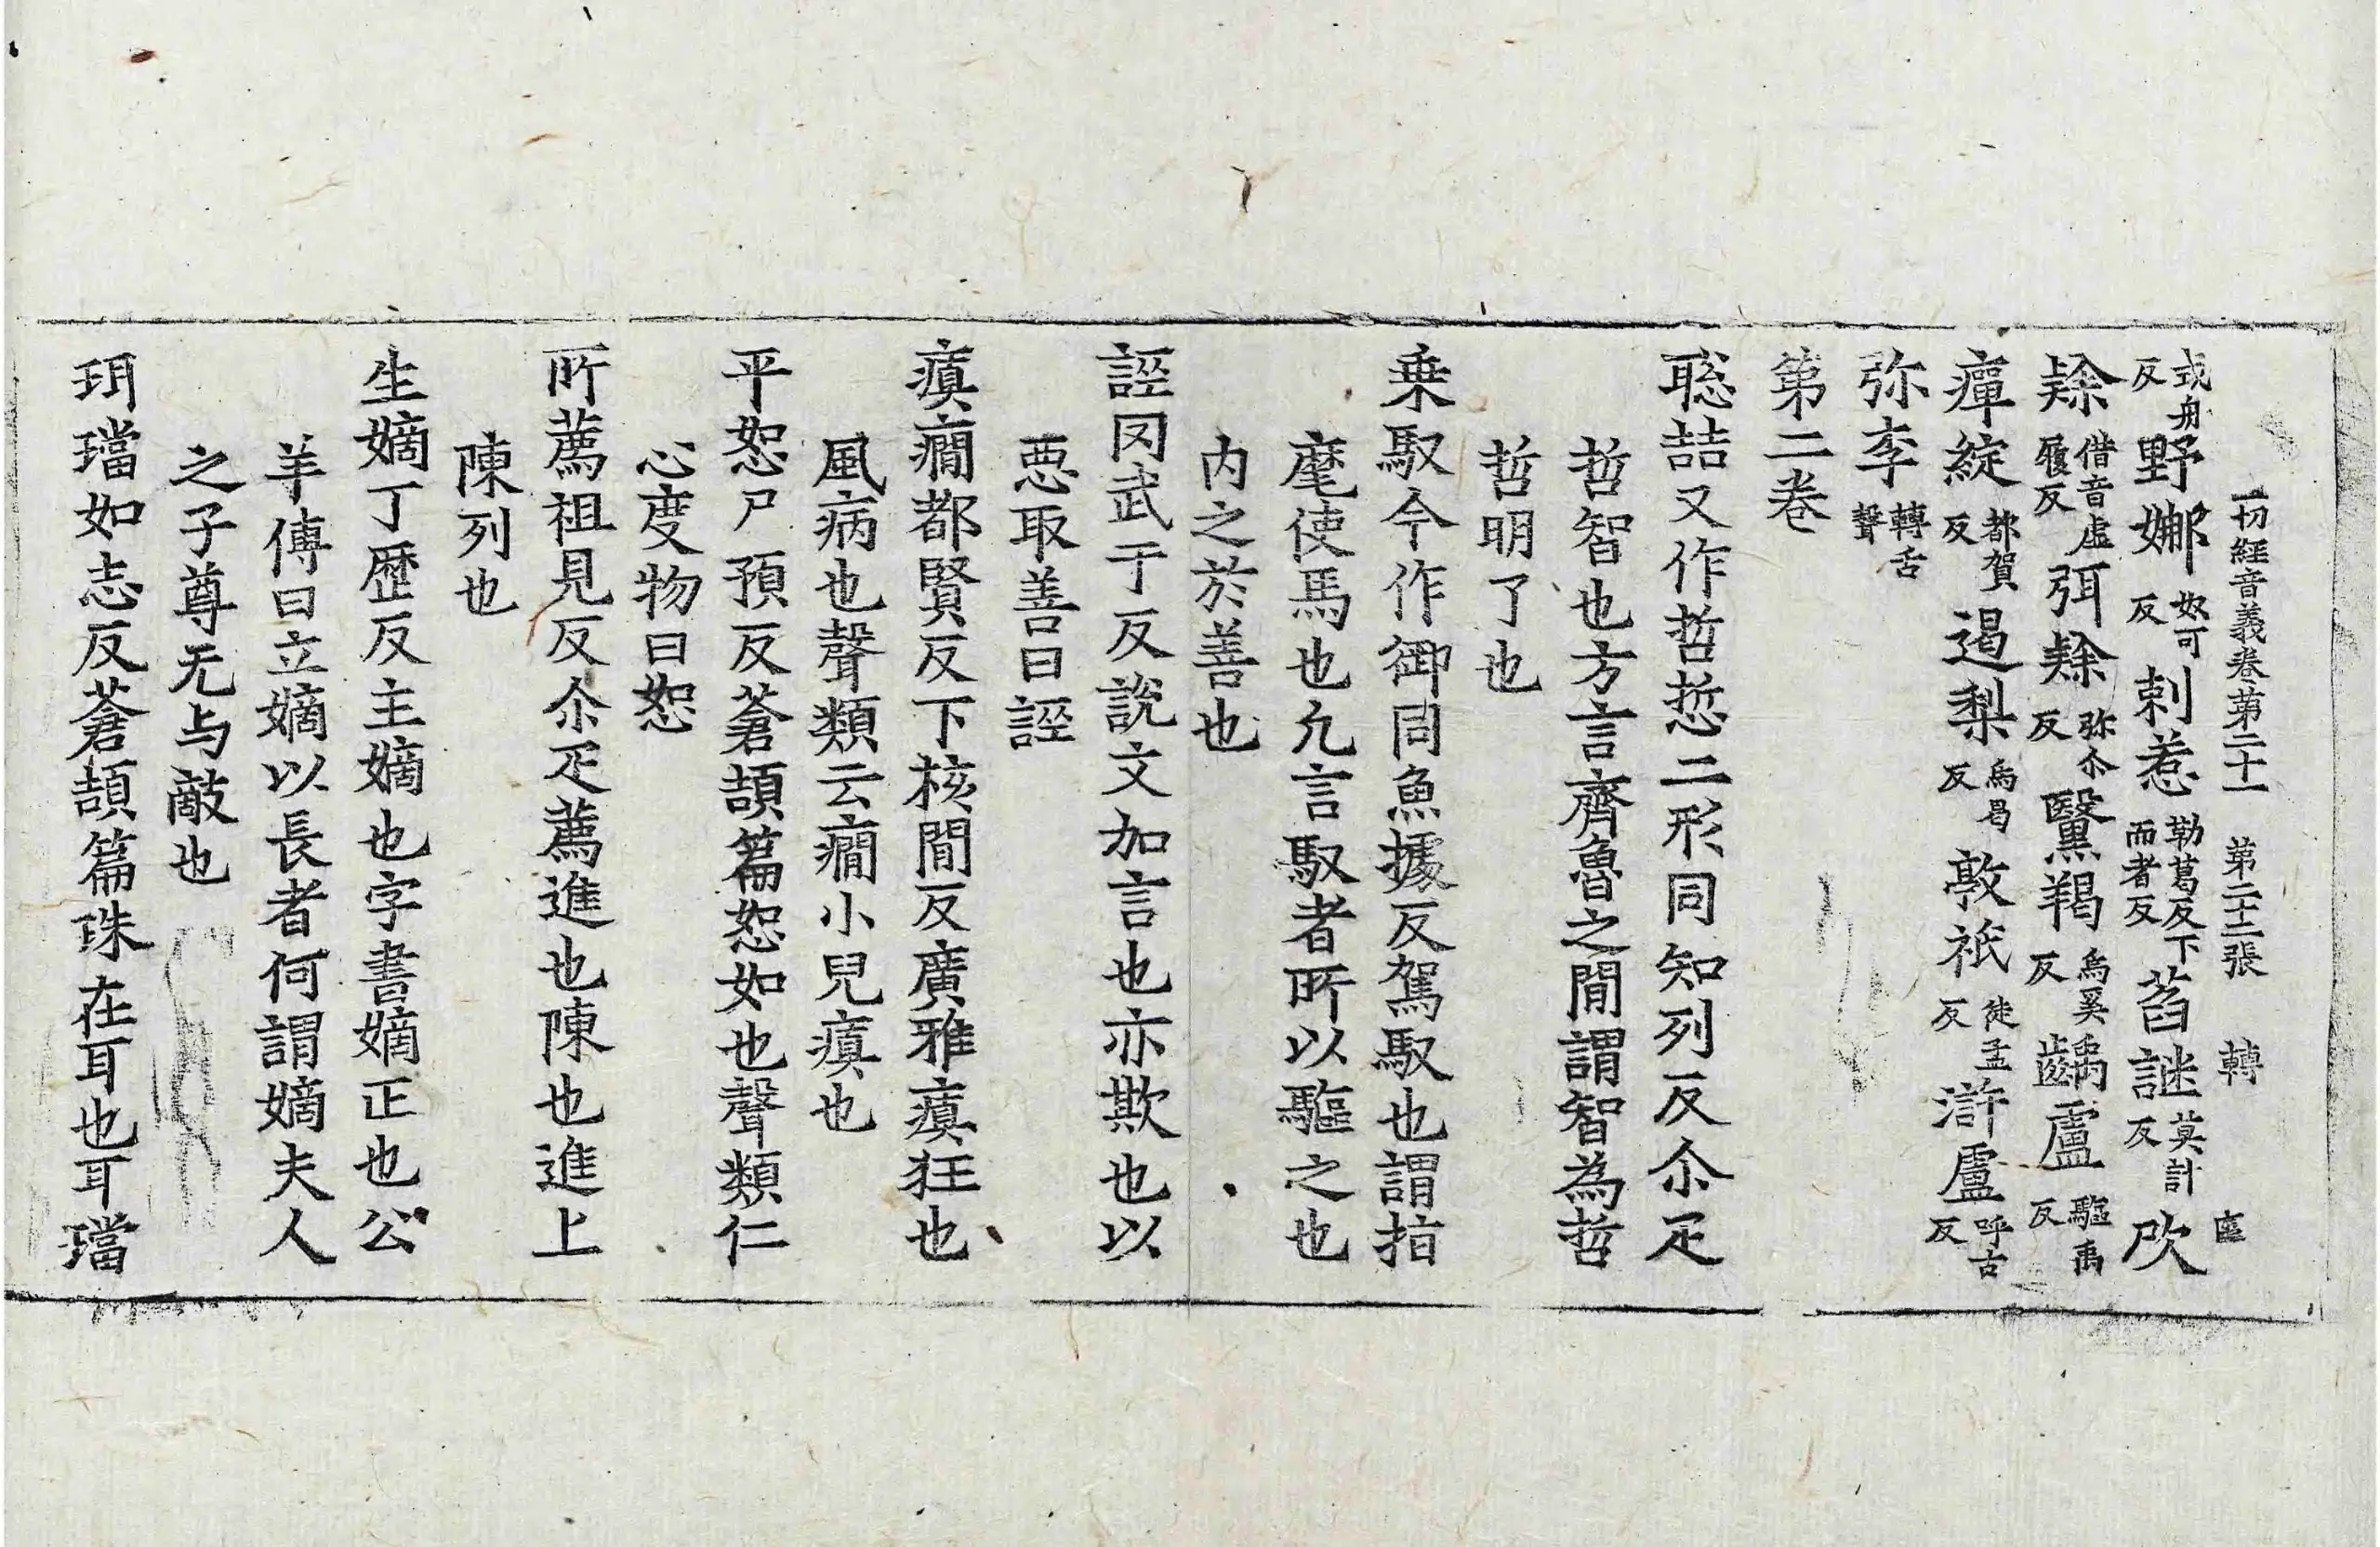 一切経音義卷苐二十一 苐二十二張 轉
式舟反野娜奴可反剌惹勒葛反下而者反䓤謎莫計反欣
䟽借音虛履反弭䟽弥尒反黳羯烏奚反齲盧驅禹反
癉綻都賀反遏梨烏曷反敦袛徒孟反滸盧呼古反
弥李轉舌聲
苐二卷
聡喆又作哲悊二形同知列反尒疋
哲智也方言齊魯之閒謂智為哲
哲明了也
乗馭今作御同魚據反駕馭也謂指
麾使馬也凡言馭者所以驅之也
内之於善也
誣罔武于反說文加言也亦欺也以
悪取善曰誣
瘨癇都賢反下核閒反廣雅瘨狂也
風病也聲類云癇小兒瘨也
平恕尸預反蒼頡篇恕如也聲類仁
心度物曰恕
所薦祖見反尒疋薦進也陳也進上
陳列也
生嫡丁歷反主嫡也字書嫡正也公
羊傳曰立嫡以長者何謂嫡夫人
之子尊无与敵也
珥璫如志反蒼頡篇珠在耳也耳璫